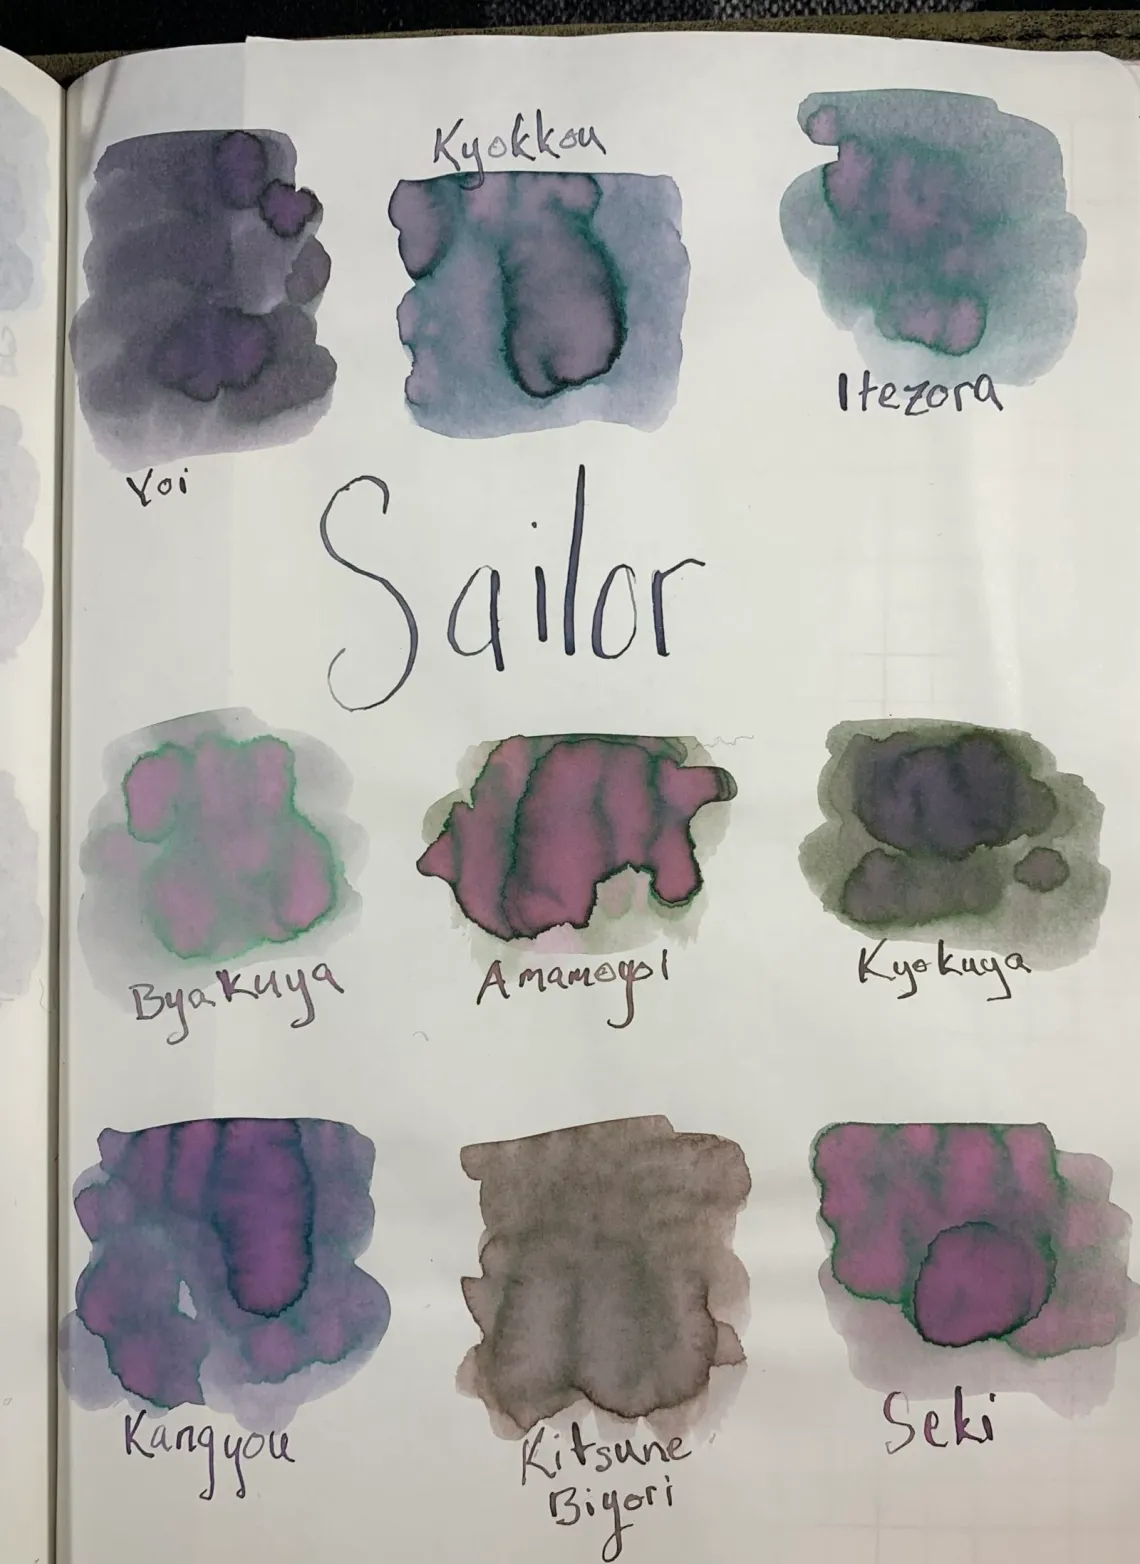 Kyokkou
Itezora
Yoi
Sailor
Byakuya
Amamogol
Kyokuya
Kangyou
Kitsune
Biyori
Seki